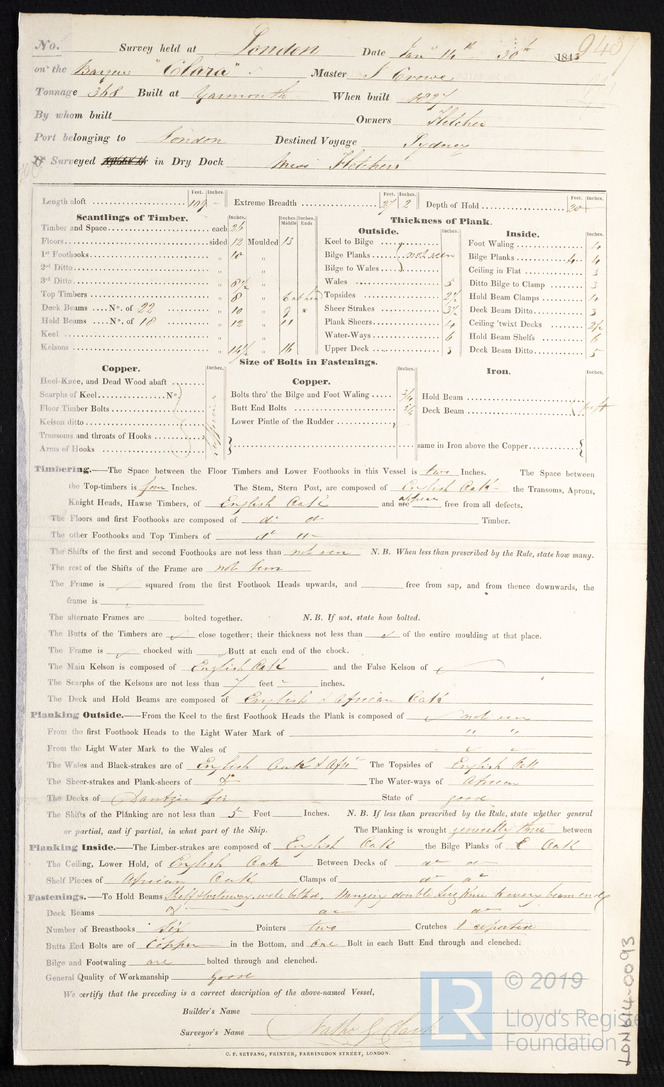 No. Survey held at London Date Jany 14th 30th 1843 9437
on the Barque "Clara" Master J Crowe
Tonnage 368 Built at Yarmouth When built 1827
By whom built Owners Fletcher
Port belonging to London Destined Voyage Sydney
Surveyed Afloat in Dry Dock Messrs Fletchers
Feet. Inches. Feet. Inches. Feet. Inches.
Length aloft 109 Extreme Breadth 27 2 Depth of Hold 20
Scantlings of Timber.
Inches. Inches Middle Inches Ends
Timber and Space each 26
Floors sided 12 Moulded 13
1st Foothooks " 10 "
2nd Ditto " "
3rd Ditto " 8½ "
Top Timbers " 8 "
Deck Beams No. of 22 " 10 " 9
Hold Beams No. of 18 " 12 " 11
Keel " "
Kelsons " 14½ " 16
Thickness of Plank.
Outside. Inches.
Keel to Bilge
Bilge Planks not seen
Bilge to Wales
Wales 5
Topsides 2½
Sheer Strakes 3½
Plank Sheers 4
Water-Ways 6
Upper Deck 3
Inside. Inches.
Foot Waling 4
Bilge Planks 4
Ceiling in Flat 3
Ditto Bilge to Clamp 3
Hold Beam Clamps 4
Deck Beam Ditto 3
Ceiling 'twixt Decks 2½
Hold Beam Shelfs 6
Deck Beam Ditto 5
Size of Bolts in Fastenings.
Copper. Inches.
Heel-Knee, and Dead Wood abaft
Scarphs of Keel No
Floor Timber Bolts
Kelson ditto
Transoms and throats of Hooks
Arms of Hooks
Copper. Inches.
Bolts thro' the Bilge and Foot Waling ¾
Butt End Bolts
Lower Pintle of the Rudder
Iron. Inches.
Hold Beam
Deck Beam
same in Iron above the Copper
Timbering.—The Space between the Floor Timbers and Lower Foothooks in this Vessel is two Inches. The Space between
the Top-timbers is four Inches. The Stem, Stern Post, are composed of English Oak the Transoms, Aprons,
Knight Heads, Hawse Timbers, of English Oak and are appear free from all defects.
The Floors and first Foothooks are composed of do do Timber.
The other Foothooks and Top Timbers of do do
The Shifts of the first and second Foothooks are not less than not seen N.B. When less than prescribed by the Rule, state how many.
The rest of the Shifts of the Frame are not seen
The Frame is squared from the first Foothook Heads upwards, and free from sap, and from thence downwards, the
frame is
The alternate Frames are bolted together. N.B. If not, state how bolted.
The Butts of the Timbers are close together; their thickness not less than of the entire moulding at that place.
The Frame is chocked with Butt at each end of the chock.
The Main Kelson is composed of English Oak and the False Kelson of
The Scarphs of the Kelsons are not less than 7 feet inches.
The Deck and Hold Beams are composed of English & African Oak
Planking Outside.—From the Keel to the first Foothook Heads the Plank is composed of not seen
From the first Foothook Heads to the Light Water Mark of " "
From the Light Water Mark to the Wales of
The Wales and Black-strakes are of English Oak & Afrn The Topsides of English
The Sheer-strakes and Plank-sheers of do The Water-ways of African
The Decks of Dantzic fir State of good
The Shifts of the Planking are not less than 5 Feet Inches. N.B. If less than prescribed by the Rule, state whether general
or partial, and if partial, in what part of the Ship. The Planking is wrought generally three between
Planking Inside.—The Limber-strakes are composed of English Oak the Bilge Planks of E Oak
The Ceiling, Lower Hold, of English Oak Between Decks of do do
Shelf Pieces of African Oak Clamps of do do
Fastenings.—To Hold Beams Shelf & Waterway, well bolted. Hanging double Lug Knee to every beam end
Deck Beams do do do
Number of Breasthooks Six Pointers two Crutches 1
Butts End Bolts are of Copper in the Bottom, and one Bolt in each Butt End through and clenched.
Bilge and Footwaling are bolted through and clenched.
General Quality of Workmanship good
We certify that the preceding is a correct description of the above-named Vessel,
Builder's Name
Surveyor's Name
C. F. SEYFANG, PRINTER, FARRINGDON STREET, LONDON.
LR © 2019
Lloyd's Register
Foundation
LON614-0093